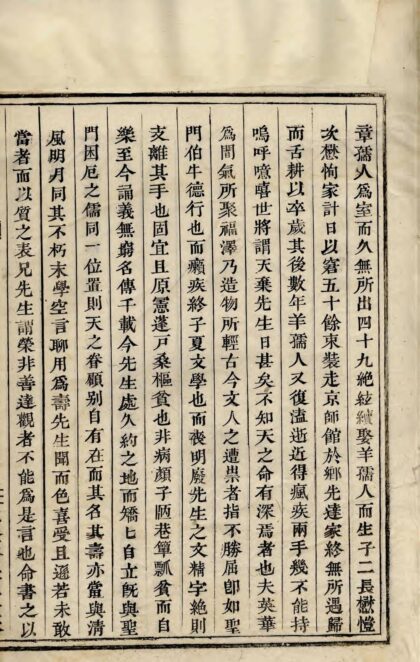 章孺人為室而久無所出四十九絶絃續娶羊孺人而生子二長懋愷
次懋恂家計日以窘五十餘束裝走京師館於鄉先達家終無所遇歸
而舌耕以卒歲其後數年羊孺人又復溘逝近得瘋疾兩手幾不能持
嗚呼噫嘻世將謂天棄先生日甚矣不知天之命有深焉者也夫英華
為間氣所聚福澤乃造物所輕古今文人之遭祟者指不勝屈卽如聖
門伯牛德行也而癩疾終子夏文學也而喪明廢先生之文精字絶則
支離其手也固宜且原憲蓬戸桑樞貧也非病顏子陋巷簞瓢貧而自
樂至今誦義無窮名傳千載今先生處久約之地而矯乜自立旣與聖
門困厄之儒同一位置則天之眷顧别自有在而其名其壽亦當與清
風明月同其不朽末學空言聊用為壽先生聞而色喜受且遜若未敢
當者而以質之表兄先生謂榮非善達觀者不能為是言也命書之以